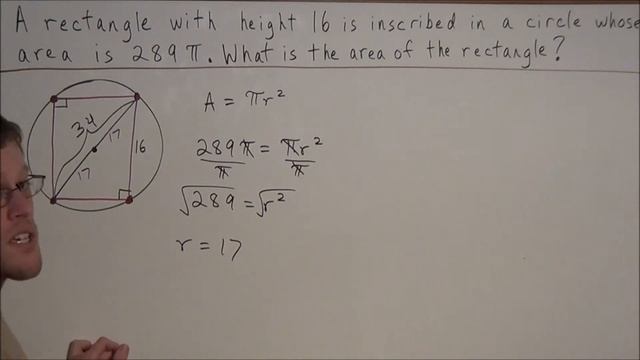 A rectangle with height 16 is inscribed in a circle whose
area is 289π. What is the area of the rectangle?
34
17
17
16
A = πr²
289π = πr²
π π
√289 = √r²
r = 17